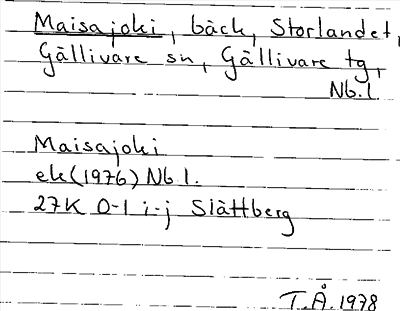 Maisajoki, bäck, Storlandet,
Gällivare sn, Gällivare tg,
Nb.l.
Maisajoki
ek (1976) Nb l.
27K 0-1 i-j Slättberg
T.Å. 1978